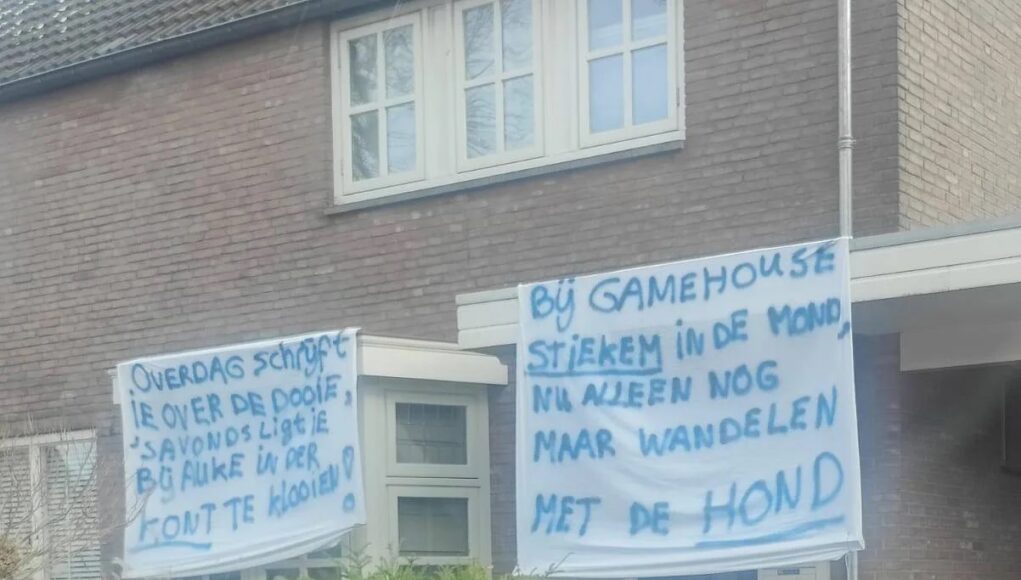 OVERDAG SCHRIJFT
JE OVER DE DOOIE,
'S AVONDS LIGT JE
BIJ AUKE IN DER
KONT TE KLOOIEN!
BIJ GAMEHOUSE
STIEKEM IN DE MOND,
NU ALLEEN NOG
MAAR WANDELEN
MET DE HOND